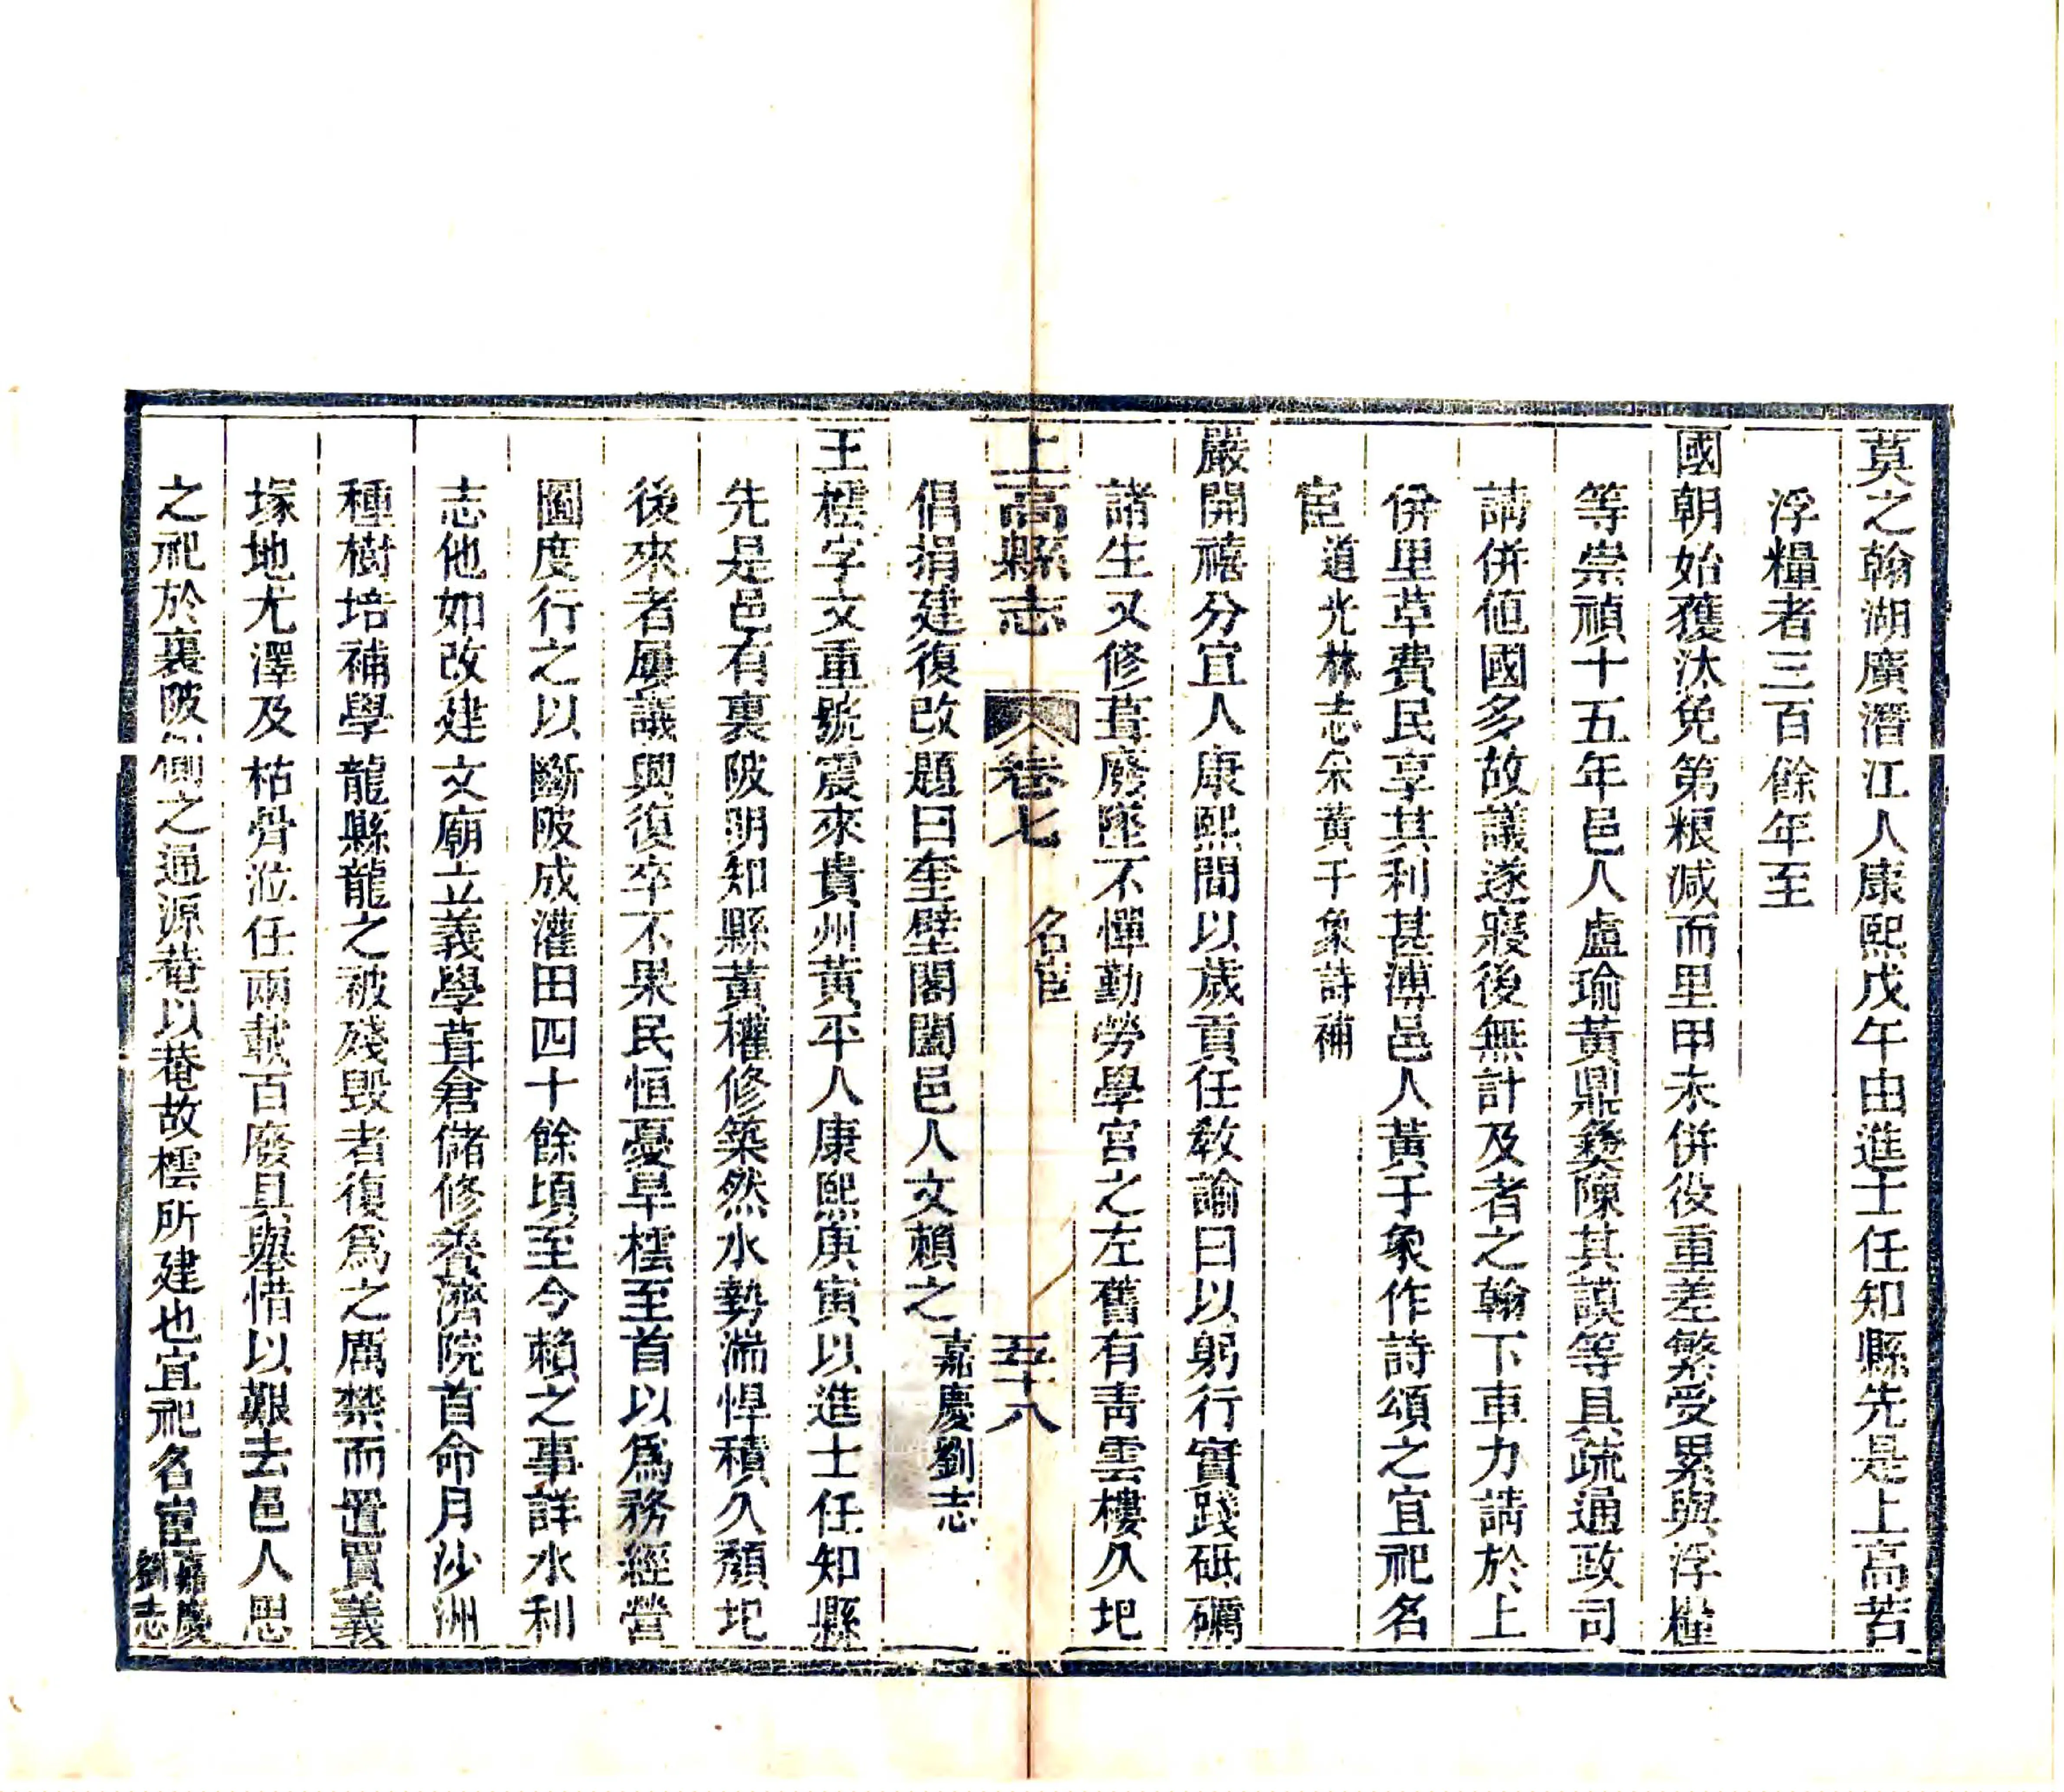 莫之翰湖廣潛江人康熙戊午由進士任知縣先是上高苦
浮糧者三百餘年至
國朝始獲汰免第粮减而里甲未併役重差繁受累與浮糧
等崇禎十五年邑人盧瑜黃鼎彝陳其謨等具疏通政司
請併值國多故議遂寢後無計及者之翰下車力請於上
併里革費民享其利甚溥邑人黃千象作詩頌之宜祀名
宦道光林志采黃千象詩補
嚴開禧分宜人康熙間以歲貢任敎諭日以躬行實踐砥礪
諸生又修葺廢墜不憚勤勞學宮之左舊有靑雲樓久圮
上高縣志 卷七 名宦 五十八
倡捐建復改題曰奎壁閣闔邑人文賴之嘉慶劉志
王橒字文重號震來貴州黃平人康熙庚寅以進士任知縣
先是邑有裏陂明知縣黃權修築然水勢湍悍積久頹圮
後來者屢議興復卒不果民恒憂旱橒至首以爲務經營
圖度行之以斷陂成灌田四十餘頃至今賴之事詳水利
志他如改建文廟立義學葺倉儲修養濟院首命月沙洲
種樹培補學龍縣龍之被殘毀者復爲之厲禁而置買義
塚地尤澤及枯骨涖任兩載百廢具舉惜以艱去邑人思
之祀於裏陂側之通源菴以菴故橒所建也宜祀名宦嘉慶劉志